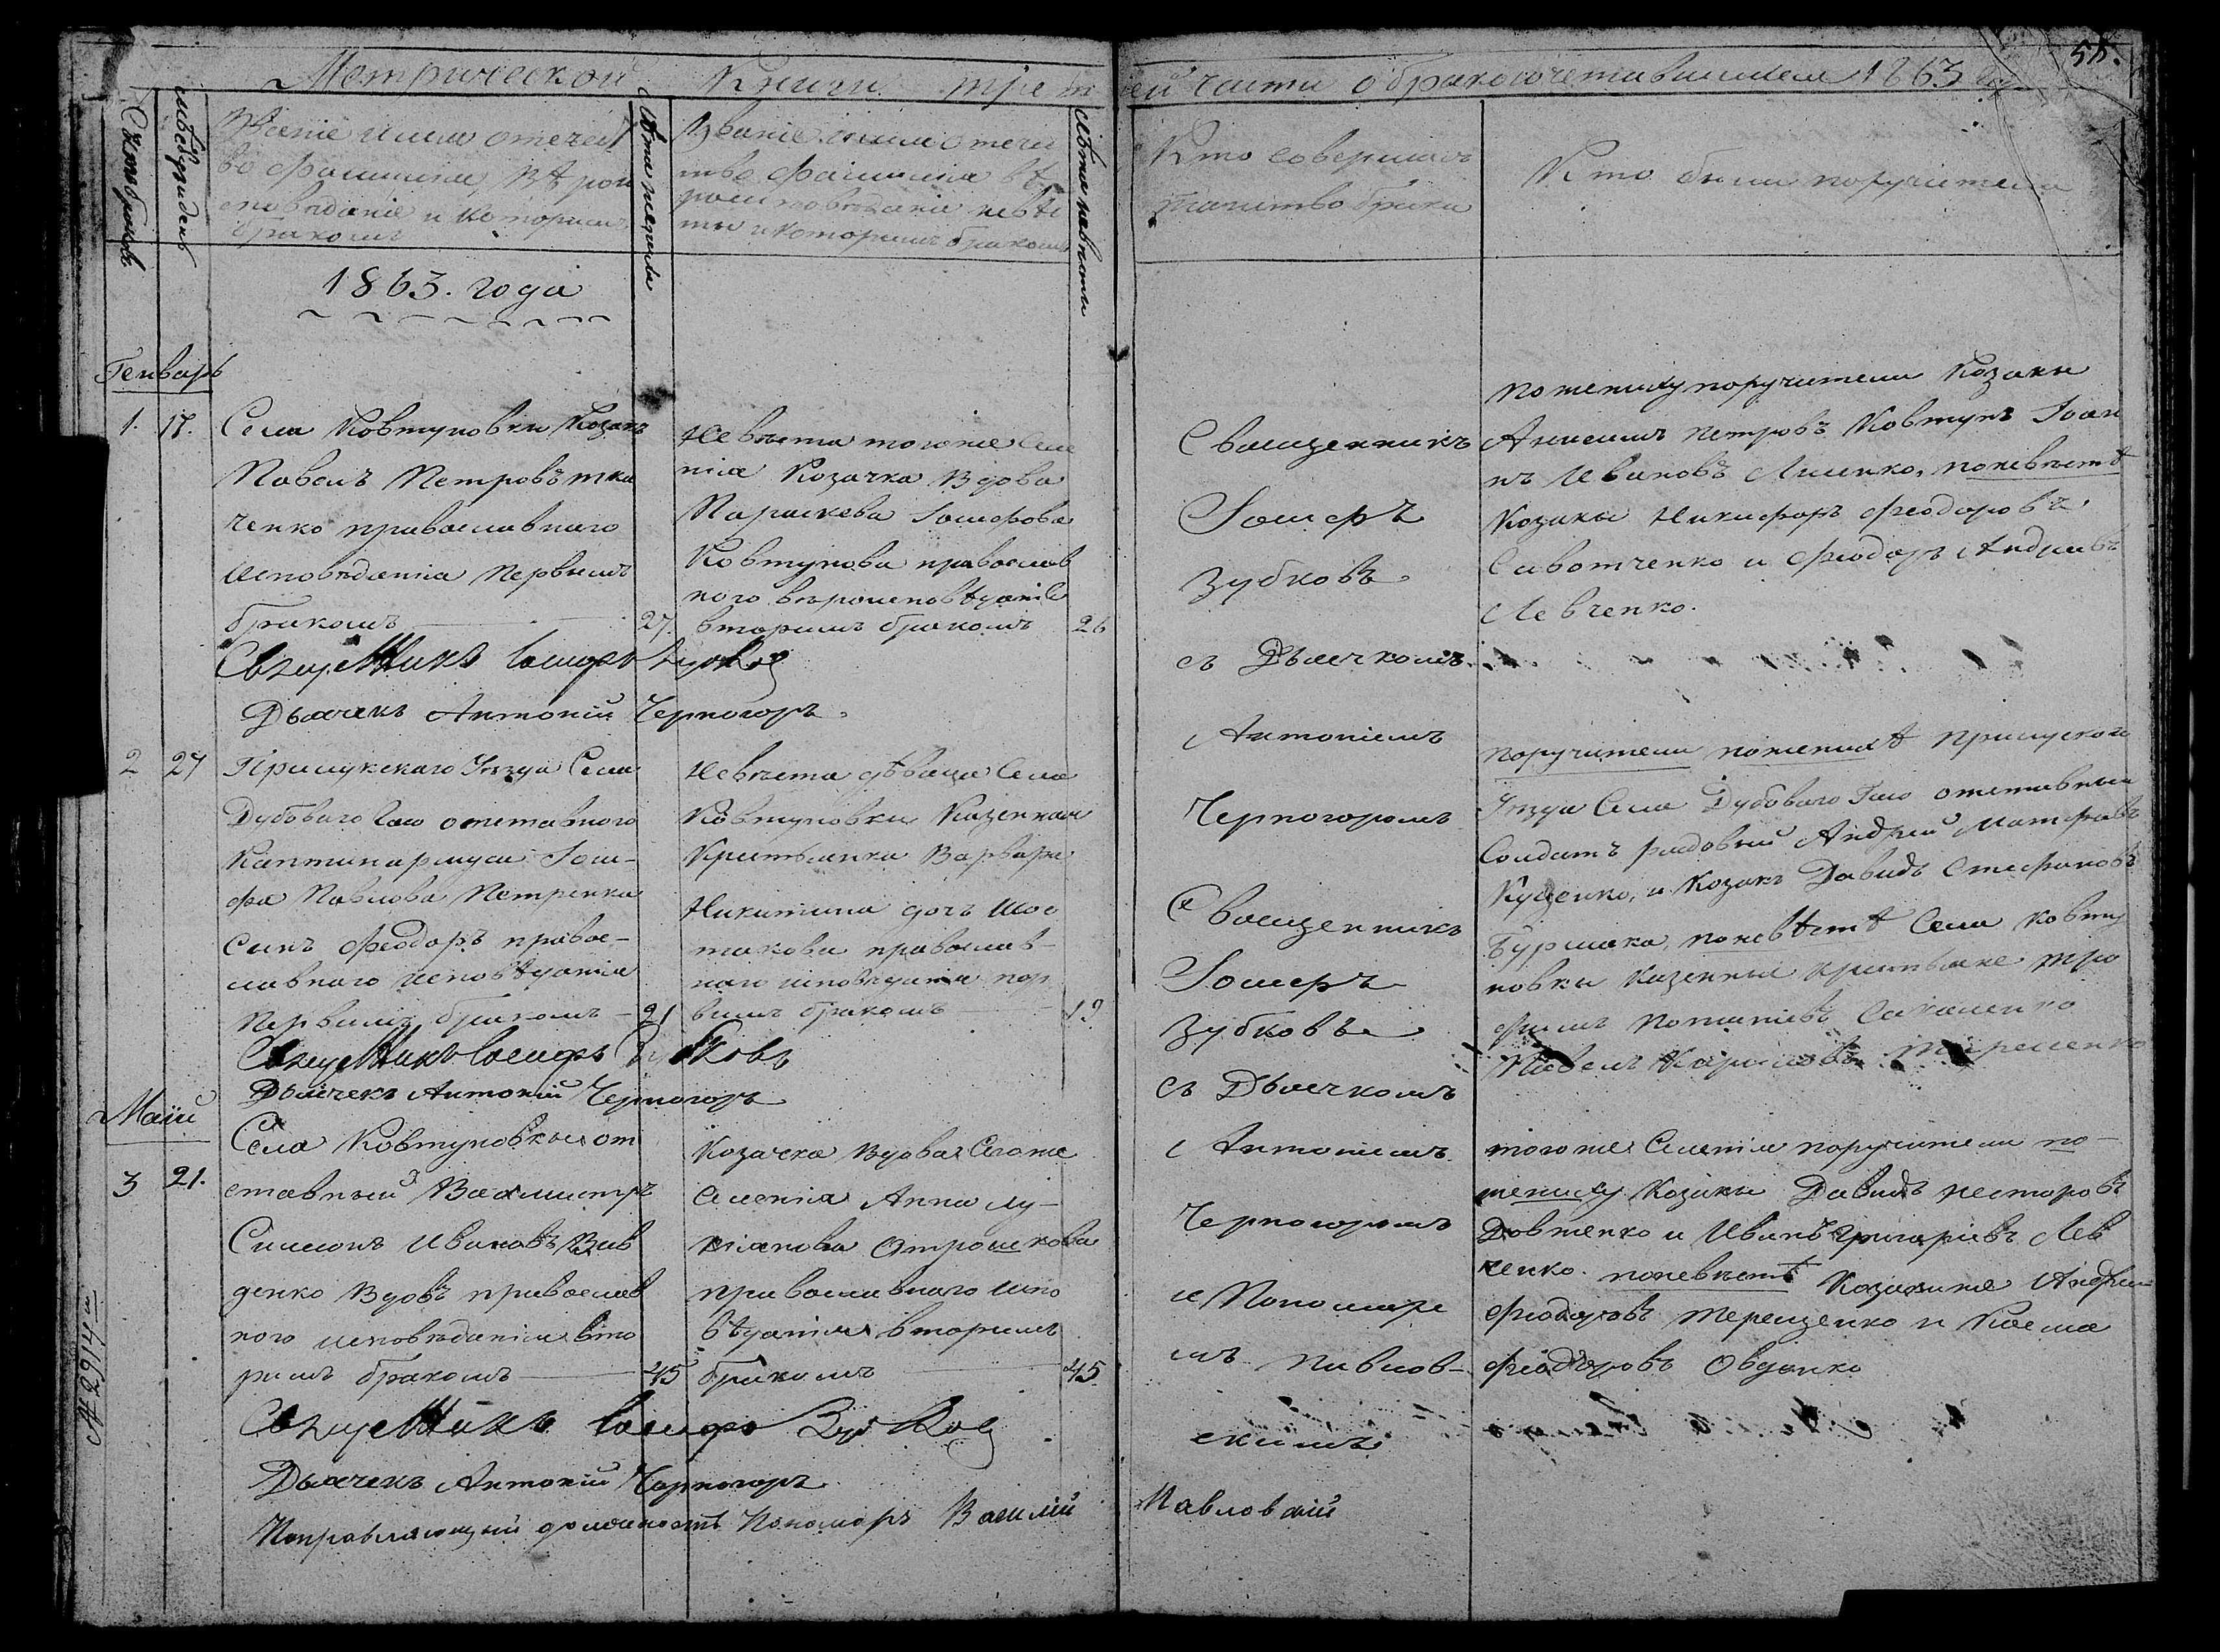 55.
Метрической Книги третей части о бракосочетавшихся 1863 года
Счетъ браковъ
Мѣсяцъ и день
Званіе имя отечест
во фамилія, вѣрои
сповѣданіе и которымъ
бракомъ
Лѣта жениха
Званіе имя отечес
тво фамилія вѣ
роисповѣданіе невѣс
ты и которымъ бракомъ
Лѣта невѣсты
Кто совершалъ
таинство брака
Кто были поручители
1863. года
Генварь
1. 17.
Села Ковтуновки Козакъ
Павелъ Петровъ тка
ченко православнаго
исповѣданія первымъ
бракомъ 27.
Невѣста тогоже Селе
нія Козачка Вдова
Параскева Іосифова
Ковтунова православ
ного вѣроисповѣданія
вторымъ бракомъ 26
Священникъ
Іосифъ
Зубковъ
съ Дьячкомъ
Антоніемъ
Черногоромъ
пожениху поручители Козаки
Анисимъ Петровъ Ковтунъ Іоан
нъ Ивановъ Лисенко, поневѣстѣ
Козаки Никифоръ Феодоровъ
Савотченко и Феодоръ Андреевъ
Левченко.
Священникъ Іосифъ Зубковъ
Дьячекъ Антоній Черногоръ
2 27
Прилукскаго Уѣзда Села
Дубоваго Гаю отставного
Каптинармуса Іоси-
фа Павлова Петренка
Сынъ Феодоръ правос-
лавного исповѣданія
первымъ бракомъ 21
Невѣста дѣвица Села
Ковтуновки Казенная
Крестьянка Варвара
Никитина дочь Шос
такова православ-
наго исповѣданія пер
вымъ бракомъ 19
Священникъ
Іосифъ
Зубковъ
съ Дьячкомъ
Антоніемъ
Черногоромъ
и Пономаре
мъ Павлов-
скимъ
поручители поженихѣ Прилуского
Уѣзда Села Дубоваго Гаю отставный
Солдатъ рядовый Андрей
Куценко, и Козакъ Давидъ Стефановъ
Бурлака, поневѣстѣ Села Ковту
новки Казенные крестьяне Тро
фимъ Савченко
Павелъ Терещенко
Священникъ Іосифъ Зубковъ
Дьячекъ Антоній Черногоръ
Маій
3 21.
Села Ковтуновки от
ставный Вахмистръ
Симеонъ Ивановъ Вив
денко Вдовъ православ
ного исповѣданія вто
рымъ бракомъ 45
Козачка Вдова Сегоже
Селенія Анна Лу-
кіянова Отрошкова
православнаго испо
вѣданія вторымъ
бракомъ 45.
тогоже Селенія поручители по-
жениху Козаки Давидъ Несторовъ
Довженко и Иванъ Григоріевъ Лев
ченко. поневѣстѣ Козакиже Андрей
Феодоровъ Терещенко и Косма
Феодоровъ Овденко
Священникъ Іосифъ Зубковъ
Дьячекъ Антоній Черногоръ
Исправляющій должность Пономаръ Василій Павловскій